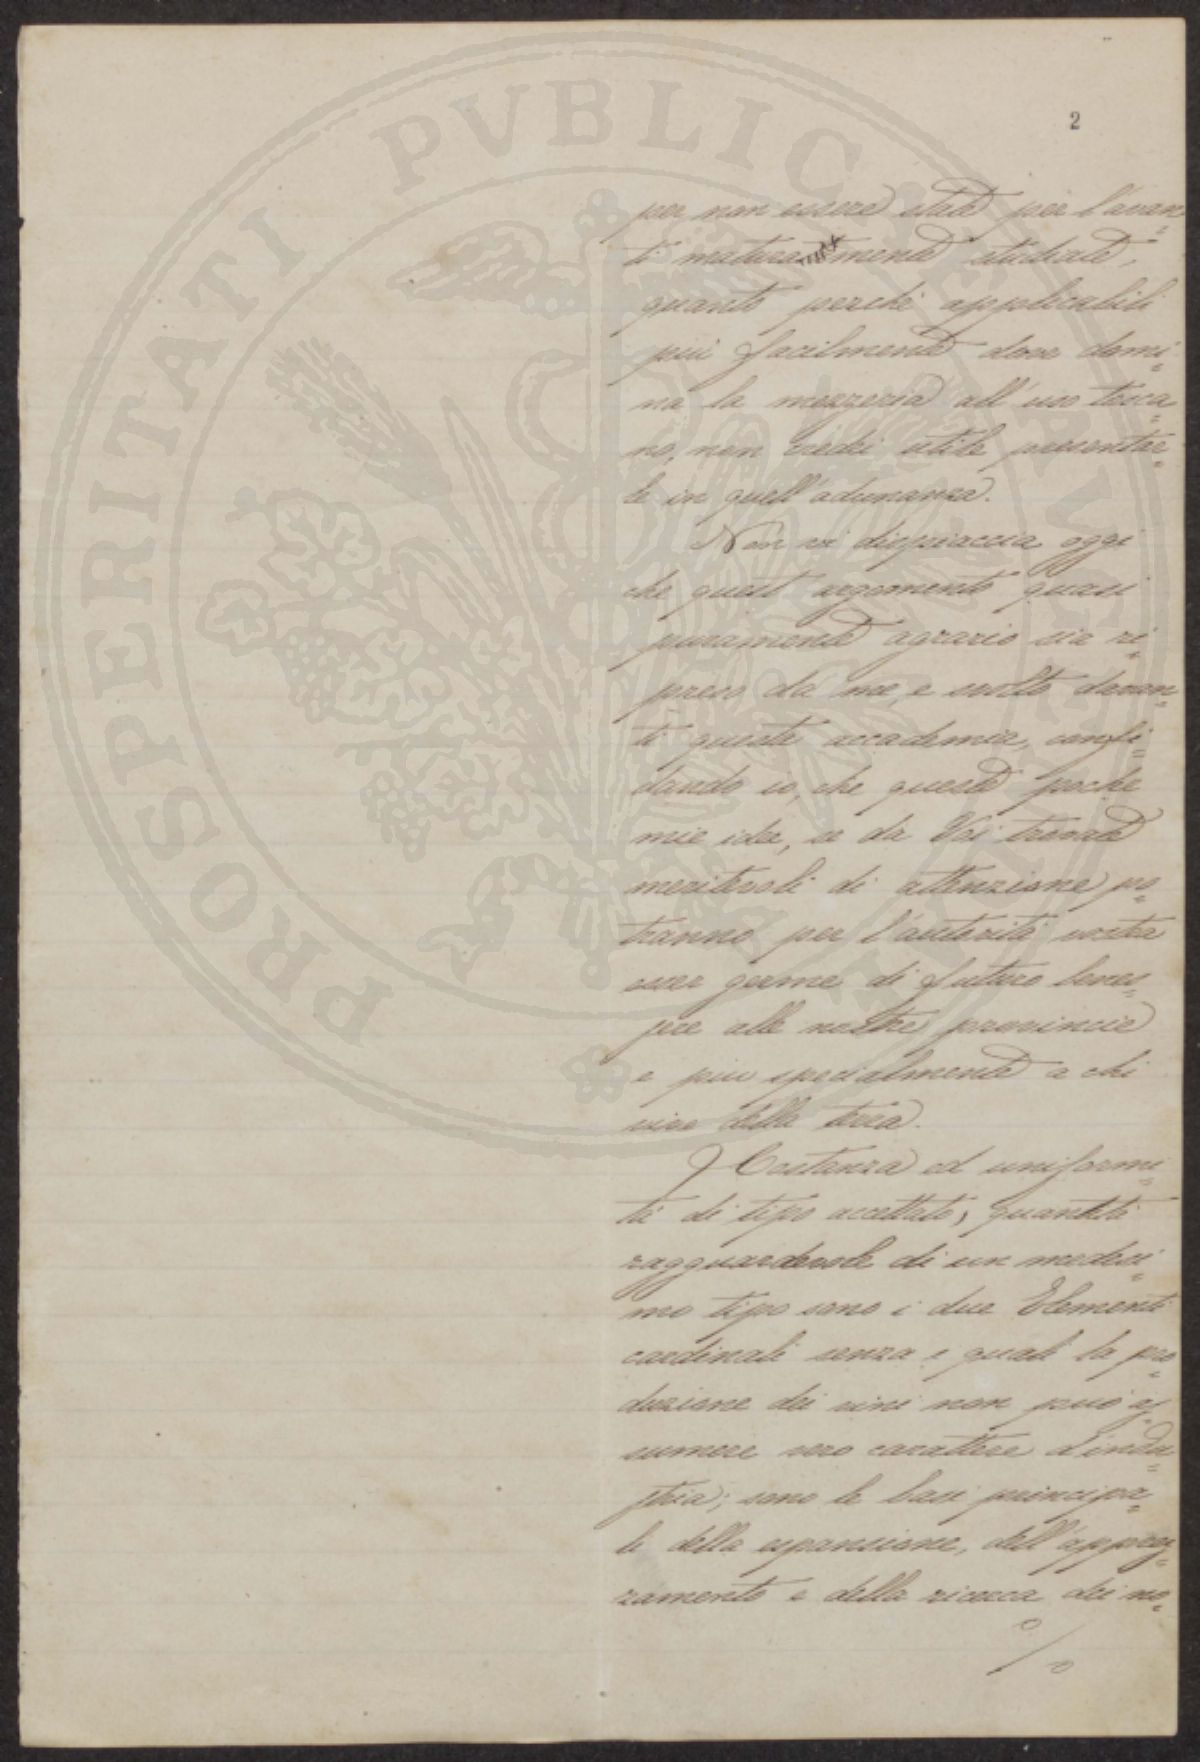 PROSPERITATI PVBLICAE AVGENDAE
2
per non essere state per l'avan=
ti maturamente studiate,
quanto perchè applicabili
più facilmente dove domi=
na la mezzeria all'uso tosca=
no, non credei utile presentar=
le in quell'adunanza.
Non vi dispiaccia oggi
che quest'argomento quasi
puramente agrario sia ri=
preso da me, e svolto davan=
ti questa accademia, confi=
dando io, che queste poche
mie idee, se da Voi trovate
meritevoli di attenzione po=
tranno per l'autorità vostra
esser germe di futuro benes=
sere alle nostre provincie
e più specialmente a chi
vive della terra.
Costanza ed uniformi=
tà di tipo accettato, quantità
ragguardevole di un medesi=
mo tipo sono i due Elementi
cardinali senza i quali la pro=
duzione dei vini non può as=
sumere vero carattere d'indu=
stria; sono le basi principa=
li della espansione, dell'apprez=
zamento e della ricerca dei no=